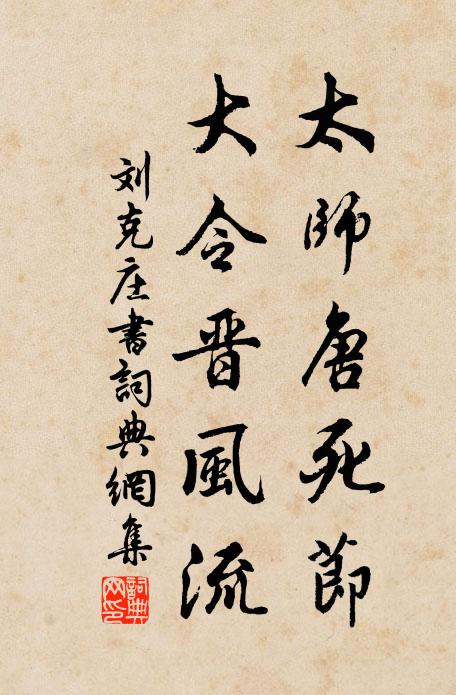 太師唐死節
大令晋風流
刘克庄書詞典網集
詞典网印